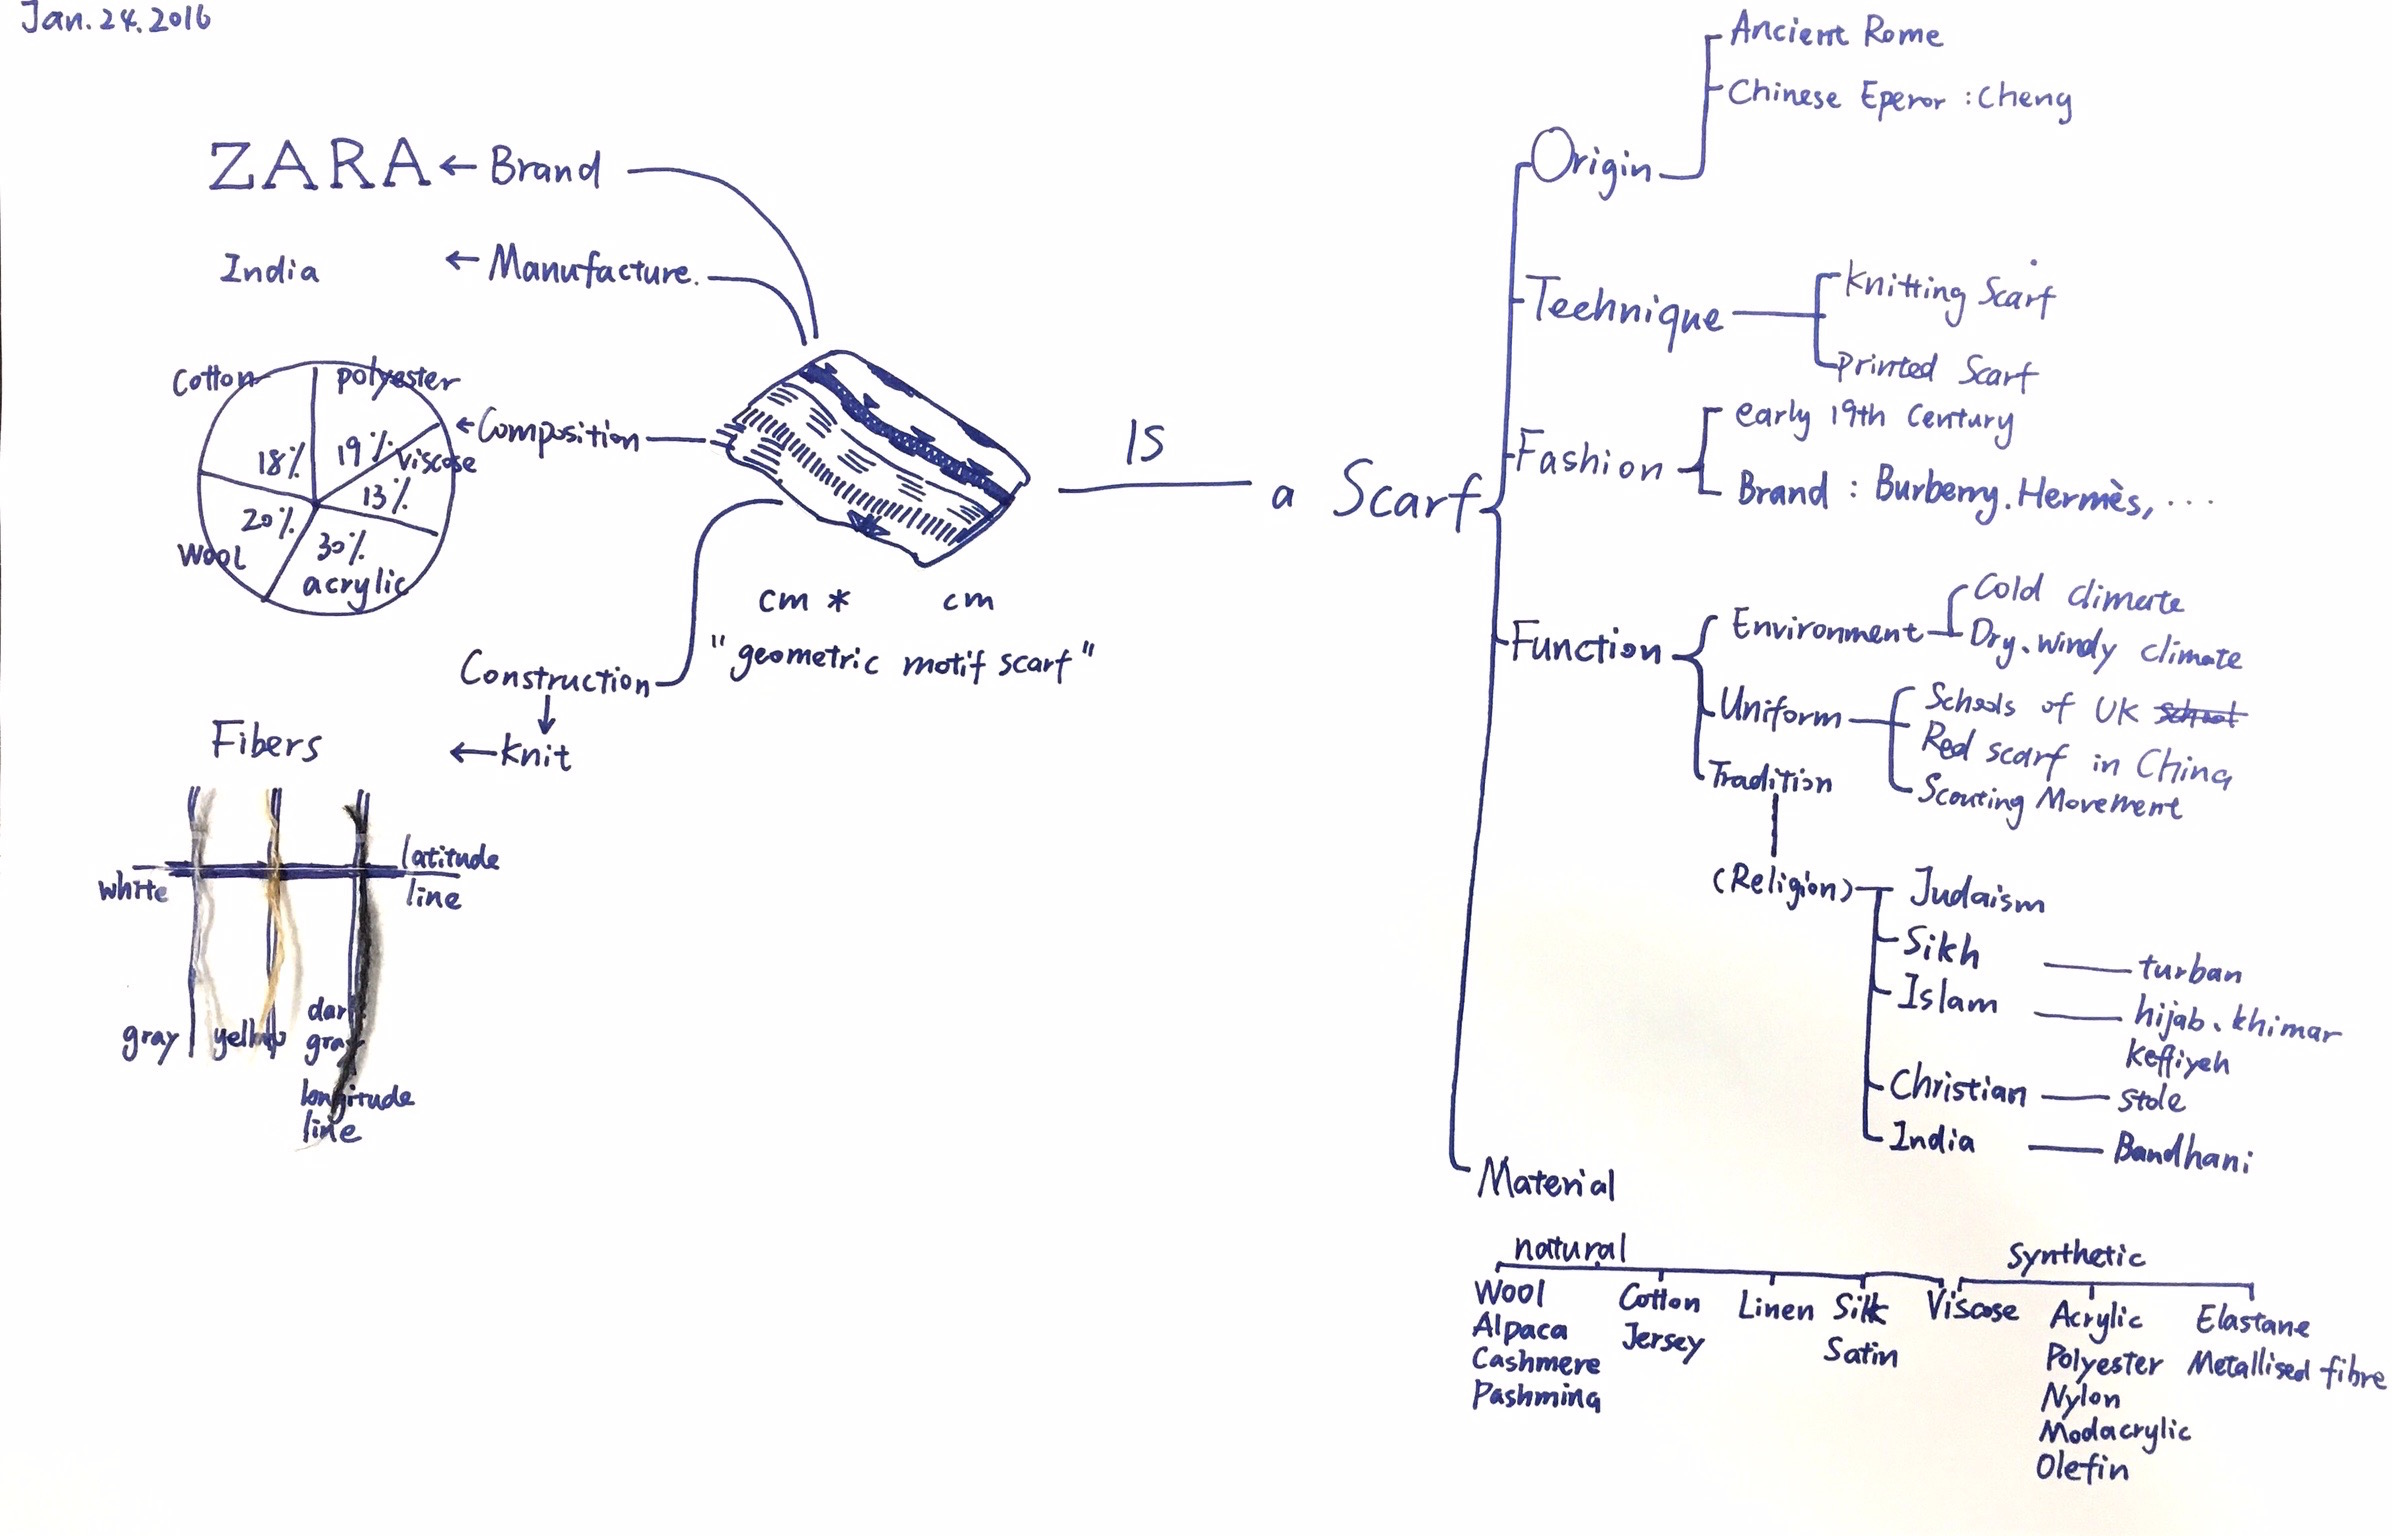 Jan.24.2016
ZARA ← Brand
India ← Manufacture.
Cotton
polyester
18%
19%
viscose
13%
20%
wool
30%
acrylic
← Composition
cm * cm
"geometric motif scarf"
Construction
← knit
Fibers
latitude
line
white
gray
yellow
dark
gray
longitude
line
IS
a Scarf
Origin
Ancient Rome
Chinese Eperor : Cheng
Technique
Knitting Scarf
Printed Scarf
Fashion
early 19th Century
Brand : Burberry. Hermès, ...
Function
Environment
Cold climate
Dry、windy climate
Uniform
Schools of UK school
Red scarf in China
Scouting Movement
Tradition
(Religion)
Judaism
Sikh
turban
Islam
hijab、khimar
keffiyeh
Christian
stole
India
Bandhani
Material
natural
Wool
Alpaca
Cashmere
Pashmina
Cotton
Jersey
Linen
Silk
Satin
Viscose
Synthetic
Acrylic
Polyester
Nylon
Modacrylic
Olefin
Elastane
Metallised fibre